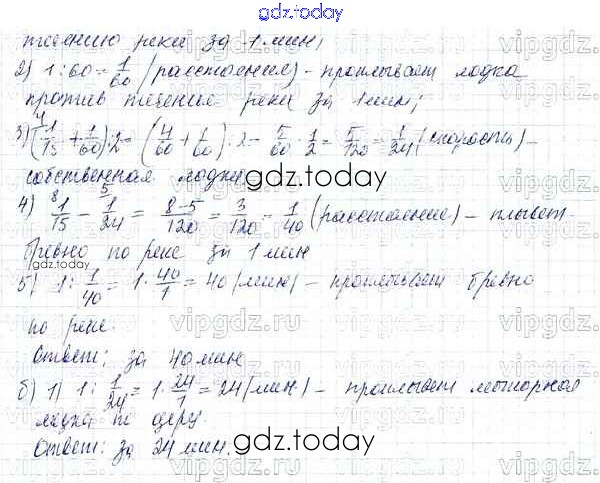 gdz.today
течению реки за 1 мин;
2) 1:60 = 1/60 (расстояния) – проплывает лодка
против течения реки за 1 мин;
3) (1/15 + 1/60):2 = (4/60 + 1/60):2 = 5/60 · 1/2 = 5/120 = 1/24 (скорость) –
собственная лодки
gdz.today
4) 1/15 – 1/24 = 8-5/120 = 3/120 = 1/40 (расстояние) – плывет
бревно по реке за 1 мин
gdz.today
5) 1: 1/40 = 1 · 40/1 = 40 (мин) – проплывает бревно
по реке.
vipgdz.ru
Ответ: за 40 мин
б) 1) 1: 1/24 = 1 · 24/1 = 24 (мин) – проплывет моторная
лодка по озеру.
Ответ: за 24 мин.
gdz.today